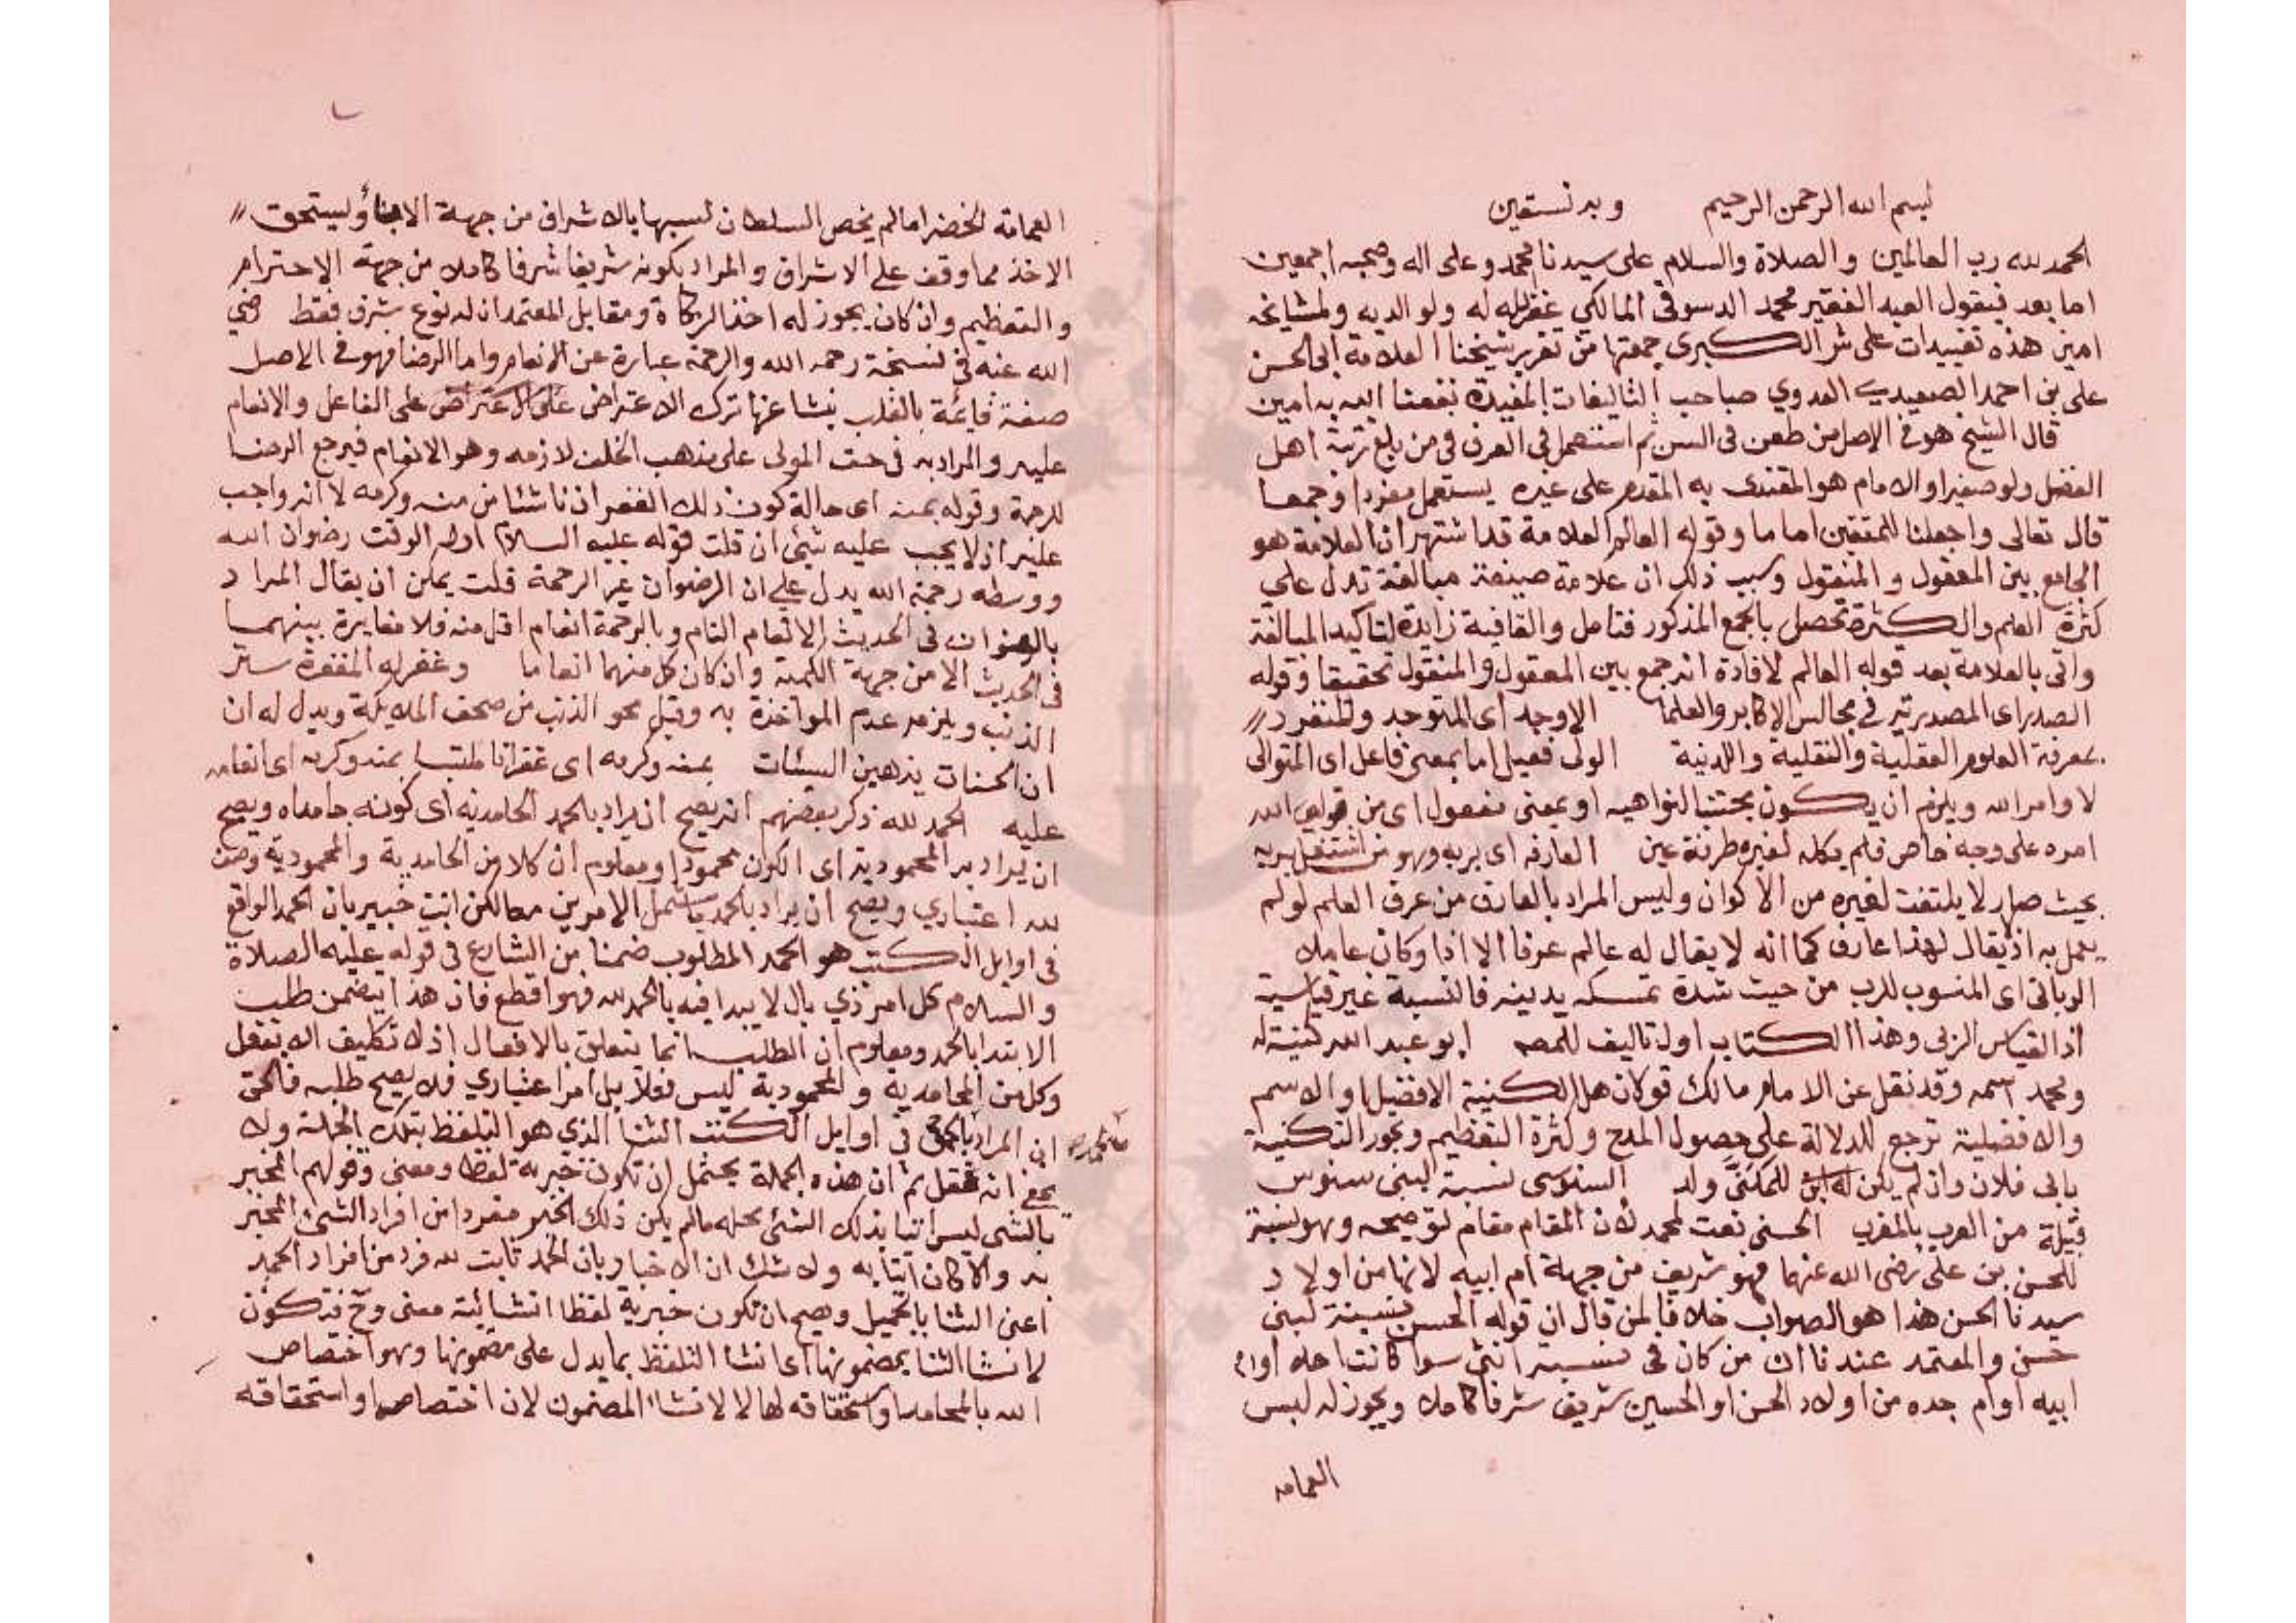 بسم الله الرحمن الرحيم وبه نستعين
الحمد لله رب العالمين والصلاة والسلام على سيدنا محمد وعلى اله وصحبه اجمعين
اما بعد فيقول العبد الفقير محمد الدسوقي المالكي غفر الله له ولوالديه ولمشايخه
امين هذه تقييدات على شر الكبرى جمعتها من تقرير شيخنا العلامة ابى الحسن
على بن احمد الصعيدي العدوي صاحب التاليفات المفيدة نفعنا الله به امين
قال الشيخ هو في الاصل من طعن في السن ثم استعمل في العرف في من بلغ رتبة اهل
الفضل ولو صغيرا والامام هو المقتدى به المقدم على غيره يستعمل مفردا وجمعا
قال تعالى واجعلنا للمتقين اماما وقوله العالم العلامة قد اشتهر ان العلامة هو
الجامع بين المعقول والمنقول وسبب ذلك ان علامة صيغة مبالغة تدل على
كثرة العلم والكثرة تحصل بالجمع المذكور فتامل والقافية زايدة لتاكيد المبالغة
واتى بالعلامة بعد قوله العالم لافادة انه جمع بين المعقول والمنقول تحقيقا وقوله
الصدر اى المصدر به في مجالس الاكابر والعلما الاوحد اى المتوحد والمنفرد
بمعرفة العلوم العقلية والنقلية واللدنية الولى فعيل اما بمعنى فاعل اى المتوالى
لاوامر الله ويلزم ان يكون مجتنبا لنواهيه او بمعنى مفعول اى من الله
امره على وجه خاص فلم يكله لغيره طرفة عين العارف اى بربه وهو من اشتغل بربه
بحيث صار لا يلتفت لغيره من الاكوان وليس المراد بالعارف من عرف العلم لو لم
يعمل به اذ يقال لهذا عارف كما انه لا يقال له عالم عرفا الا اذا وكان عاملا
الرباني اى المنسوب للرب من حيث شدة تمسكه بدينه فالنسبة غير قياسية
اذ القياس الربي وهذا الكتاب اول تاليف للمصه ابو عبد الله كنية له
ومحمد اسمه وقد نقل عن الامام مالك قوكان هل الكنية الافضل او الاسم
والافضلية ترجع للدلالة على حصول المدح وكثرة التعظيم ويجوز التكنية
بابى فلان وان لم يكن له ابن للمكنى ولد السنوسى نسبة لبنى سنوس
قبيلة من العرب بالمغرب الحسنى نعت لمحمد لان المقام مقام توضيحه وهو نسبة
للحسن بن على رضى الله عنهما فهو شريف من جهة ام ابيه لانها من اولاد
سيدنا الحسن هذا هو الصواب خلافا لمن قال ان قوله الحسن نسبة لبنى
حسن والمعتمد عندنا ان من كان في نسبه انثى سوا كانت امه او ام
ابيه او ام جده من اولاد الحسن او الحسين شريف شرفا كاملا ويجوز له لبس
العمامه
العمامة الخضرا مالم يخص السلطان لبسها بالاشراف من جهة الابنا ويستحق
الاخذ مما وقف على الاشراف والمراد بكونه شريفا شرفا كاملا من جهة الاحترام
والتعظيم وان كان يجوز له اخذ الزكاة ومقابل المعتمد ان له نوع شرف فقط رضي
الله عنه في نسخة رحمه الله والرحمة عبارة عن الانعام واما الرضا فهو في الاصل
صفة قائمة بالقلب ينشا عنها ترك الاعتراض على الفاعل والانعام
عليه والمراد به في حق المولى على مذهب الخلف لازمه وهو الانعام فيرجع الرضا
للرحمة وقوله بمنه اى حالة كون ذلك الغفران ناشئا من منه وكرمه لا انه واجب
عليه اذ لا يجب عليه شئ ان قلت قوله عليه السلام اول الوقت رضوان الله
ووسطه رحمة الله يدل على ان الرضوان غير الرحمة قلت يمكن ان يقال المراد
بالرضوان في الحديث الانعام التام وبالرحمة انعام اقل منه فلا مغايرة بينهما
في الحديث الا من جهة الكمية وان كان كل منهما انعاما وغفر له المغفرة ستر
الذنب ويلزمه عدم المواخذة به وقيل محو الذنب من صحف الملايكة ويدل له ان
ان الحسنات يذهبن السيئات بمنه وكرمه اى غفرانا ملتبسا بمنه وكرمه اى انعامه
عليه الحمد لله ذكر بعضهم انه يصح ان يراد بالحمد الحامدية اى كونه حامدا ويصح
ان يراد به المحمودية اى الكون محمودا ومعلوم ان كلا من الحامدية والمحمودية وصف
لله اعتباري ويصح ان يراد بالحمد ما يشمل الامرين معا لكن انت خبير بان الحمد الواقع
في اوايل الكتب هو الحمد المطلوب ضمنا من الشارع في قوله عليه الصلاة
والسلام كل امر ذي بال لا يبدا فيه بالحمد لله فهو اقطع فان هذا يتضمن طلب
الابتدا بالحمد ومعلوم ان الطلب انما يتعلق بالافعال اذ لا تكليف الا بفعل
وكل من الحامدية والمحمودية ليس فعلا بل امرا اعتباري فلا يصح طلبه فالحق
ان المراد بالحمد في اوايل الكتب الثنا الذي هو التلفظ بتلك الجملة ولا
يخفى انه فعل ثم ان هذه الجملة يحتمل ان تكون خبرية لفظا ومعنى وقولهم المخبر
بالشى ليس اتيا بذلك الشئ محله مالم يكن ذلك الخبر مفردا من افراد الشئ المخبر
به والا كان اتيا به ولا شك ان الاخبار بان الحمد ثابت لله فرد من افراد الحمد
اعنى الثنا بالجميل ويصح ان تكون خبرية لفظا انشائية معنى وح فتكون
لانشا الثنا بمضمونها اى انشا التلفظ بما يدل على مضمونها وهو اختصاص
الله بالمحامد واستحقاقه لها لا لانشا المضمون لان اختصاص او استحقاقه